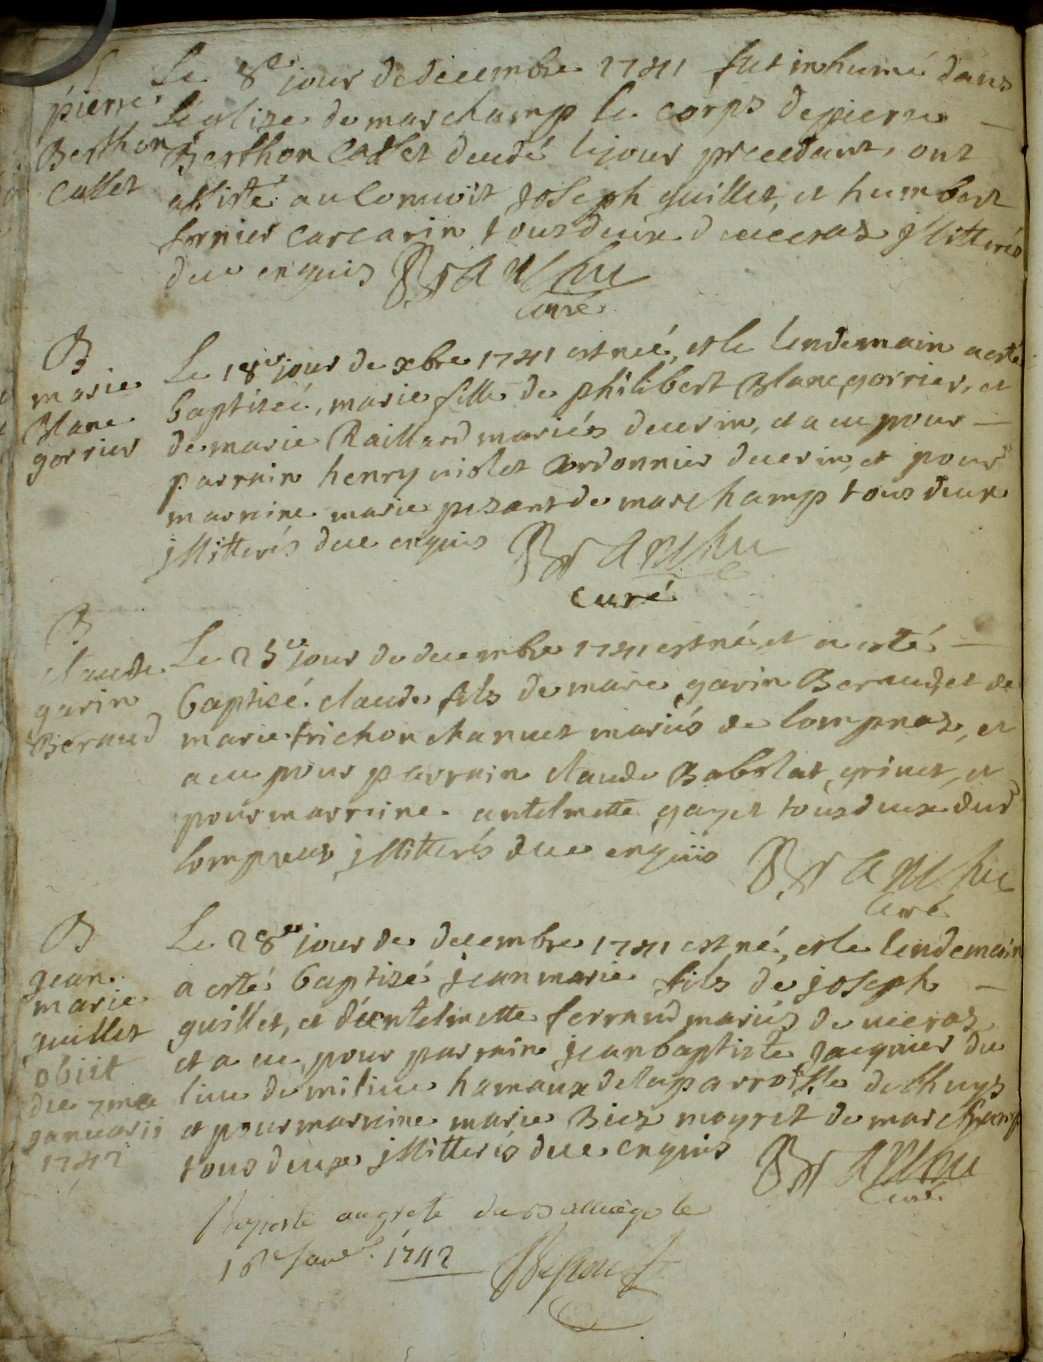 pierre
Berthon
Callet
Le 8e jour de decembre 1741 fut inhumé dans
l'eglize de marchamp le corps de pierre
Berthon Callet decedé le jour precedant, ont
assisté au convoit joseph guillet, et humbert
fornier carcarin tous deux d'ueeras jllitterés
due enquis
curé
B
marie
Blanc
gorrier
Le 18e jour de xbre 1741 est neé, et le lendemain a esté
baptizeé, marie fille de philibert Blanc gorrier, et
de marie Raillard mariés d'uerin, et a eu pour
parrain henry violet Cordonnier d'uerin, et pour
marreine marie pezant de marchamp tous deux
jllitterés due enquis
curé
B
claude
garin
Beraud
Le 25e jour de decembre 1741 est né, et a esté
baptizé claude fils de marc garin Beraud, et de
marie trichon chanuet mariés de lompnas, et
a eu pour parrain claude Babolat grinet, et
pour marreine antelmette gayet tous deux dud
lompnas jllitterés due enquis
curé
B
jean
marie
guillet
obiit
die 7ma
januarii
1742
Le 28e jour de decembre 1741 est né, et le lendemain
a esté baptizé jean marie fils de joseph
guillet, et d'antelmette ferrand mariés de ueeras
et a eu pour parrain jean baptiste jacquier du
lieu de milieu hamaux de la parroisse de lhuys
et pour marreine marie Biez moyret de marchamp
tous deux jllitterés due enquis
curé
au grefe du Balliage le
16e Janer 1742